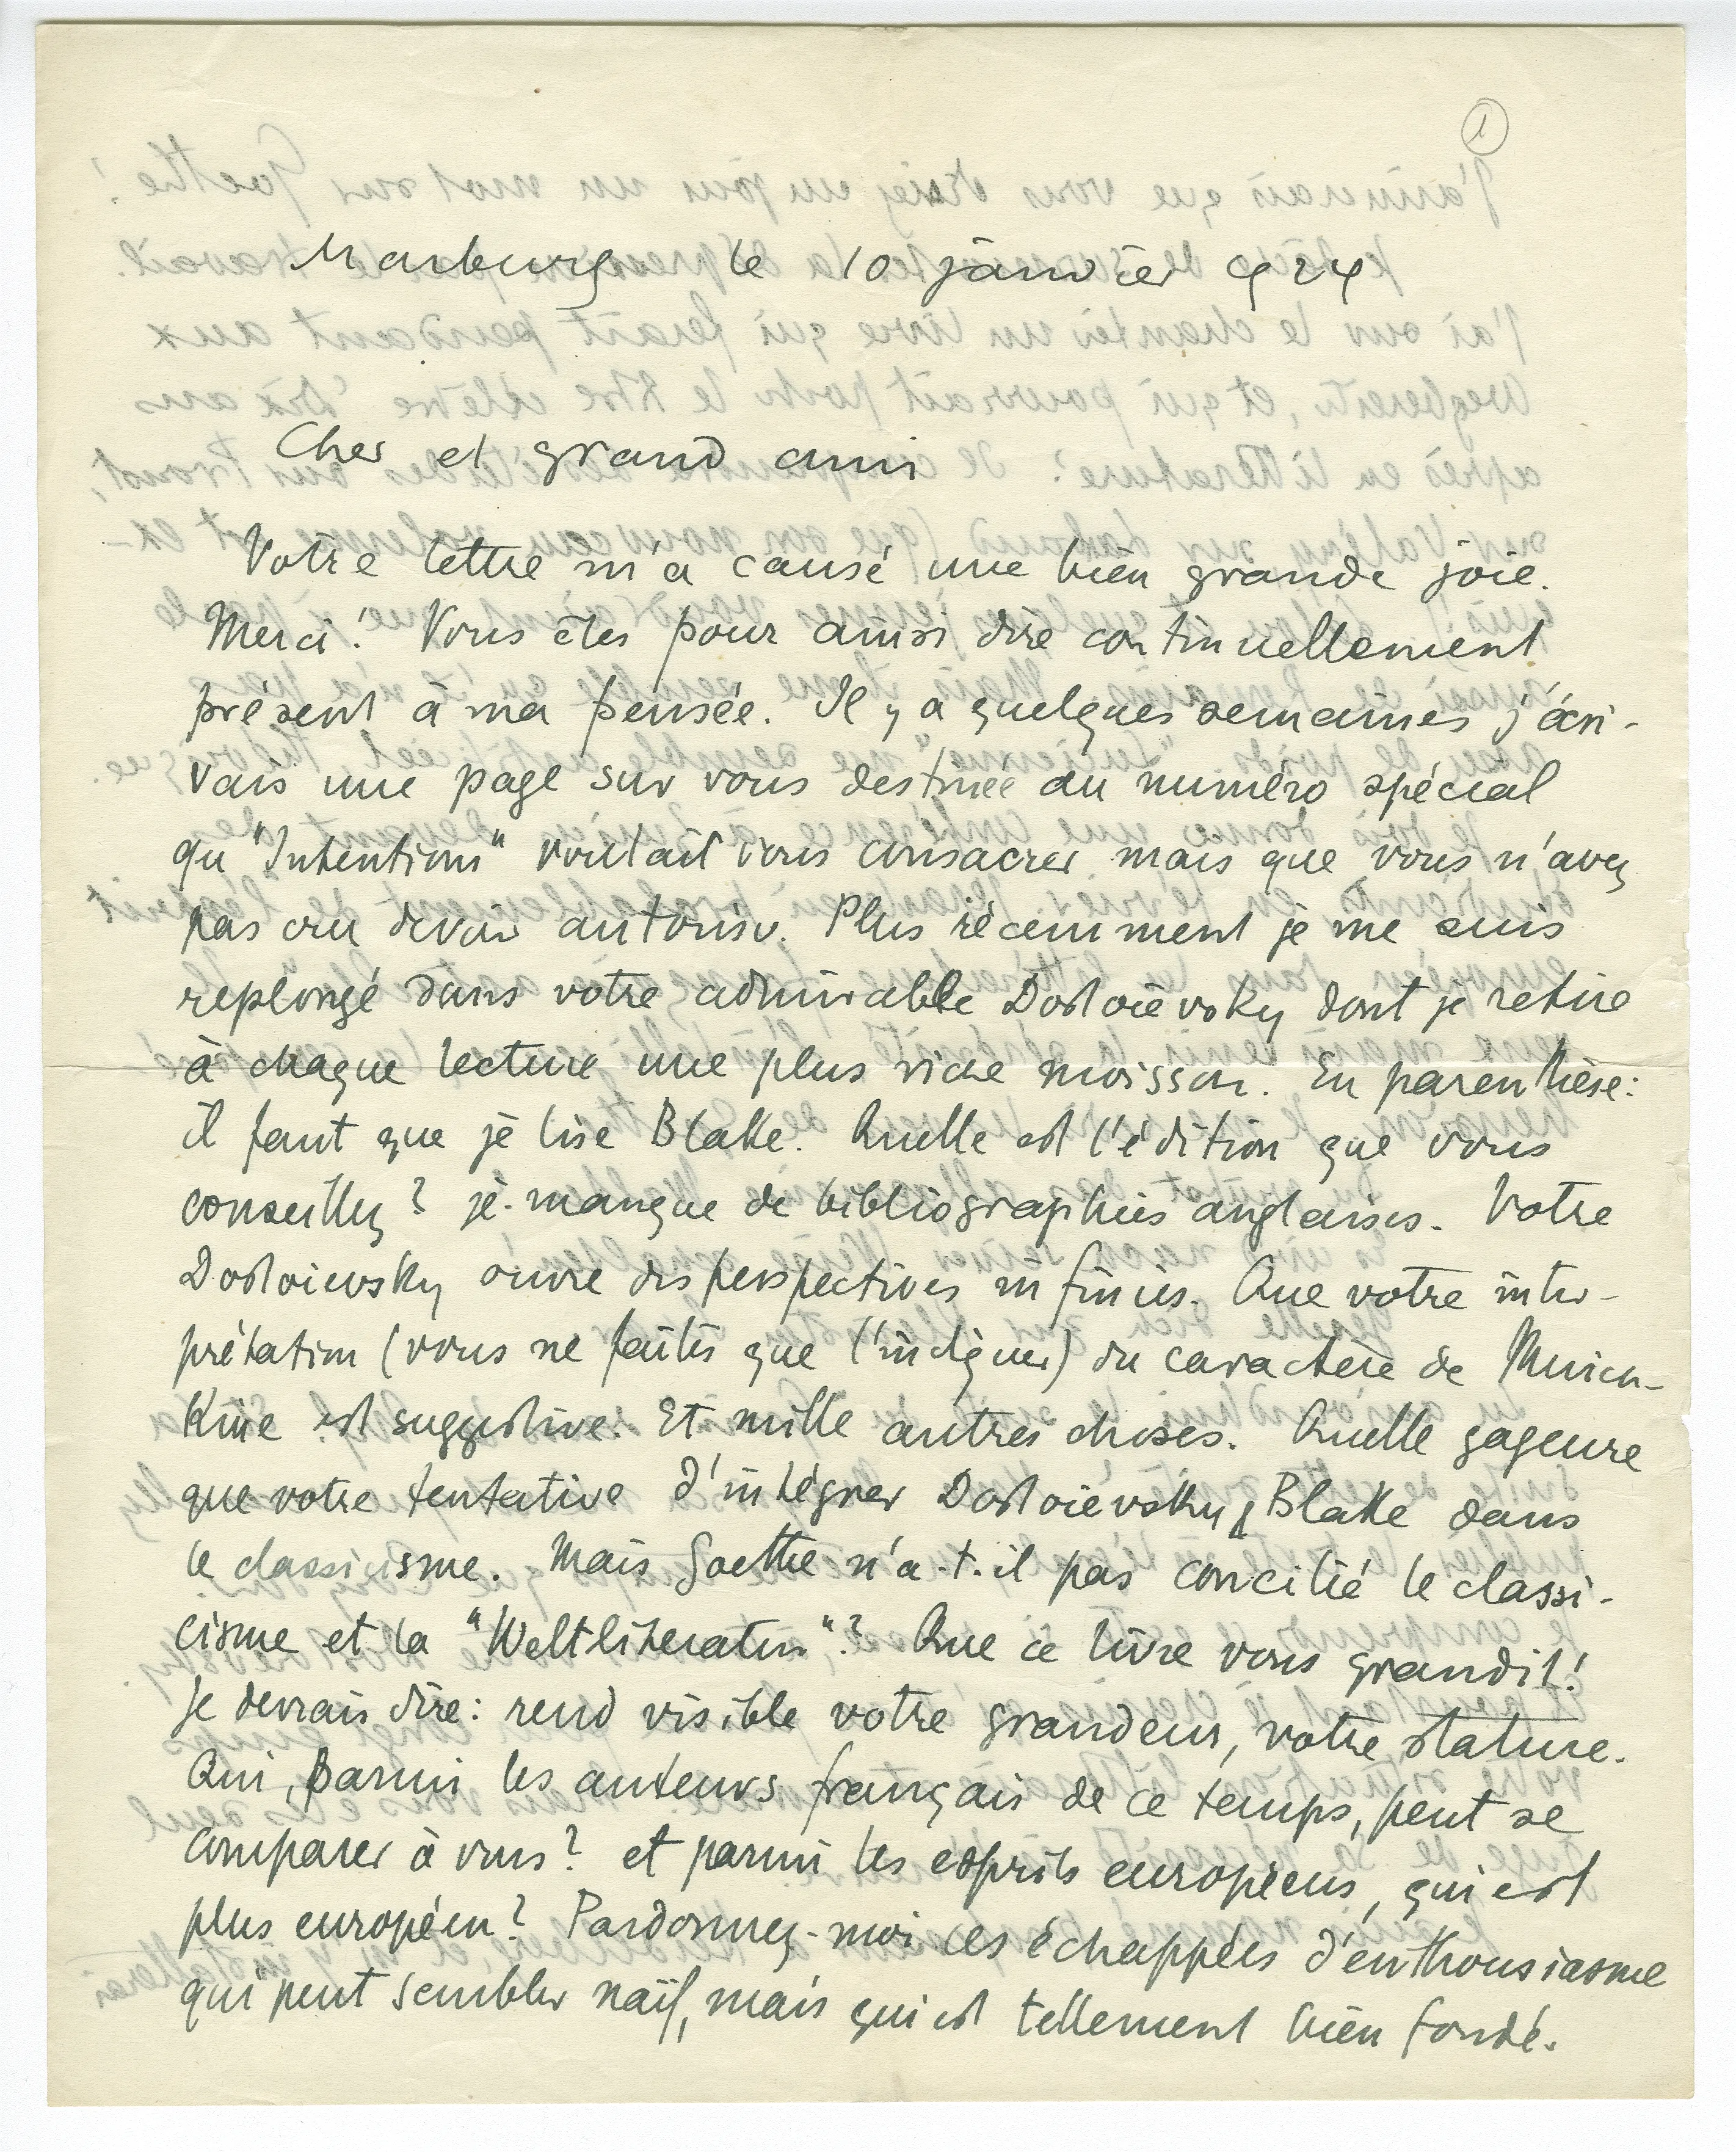 1
Marburg le 10 janvier 924
Cher et grand ami
Votre lettre m'a causé une bien grande joie.
Merci! Vous êtes pour ainsi dire continuellement
présent à ma pensée. Il y a quelques semaines j'écri-
vais une page sur vous destinée au numéro spécial
qu'"Intentions" voulait vous consacrer mais que vous n'avez
pas cru devoir autoriser. Plus récemment je me suis
replongé dans votre admirable Dostoïevsky dont je retire
à chaque lecture une plus riche moisson. En parenthèse:
il faut que je lise Blake. Quelle est l'édition que vous
conseillez? je manque de bibliographies anglaises. Votre
Dostoievsky ouvre des perspectives infinies. Que votre inter-
prétation (vous ne faites que l'indiquer) du caractère de Muich-
kine est suggestive. Et mille autres choses. Quelle gageure
que votre tentative d'intégrer Dostoïevsky & Blake dans
le classicisme. Mais Goethe n'a-t-il pas concilié le classi-
cisme et la "Weltliteratur"? Que ce livre vous grandit!
Je devrais dire: rend visible votre grandeur, votre stature.
Qui, parmi les auteurs français de ce temps, peut se
comparer à vous? et parmi les esprits européens, qui est
plus européen? Pardonnez-moi ces échappées d'enthousiasme
qui peut sembler naïf, mais qui est tellement bien fondé.